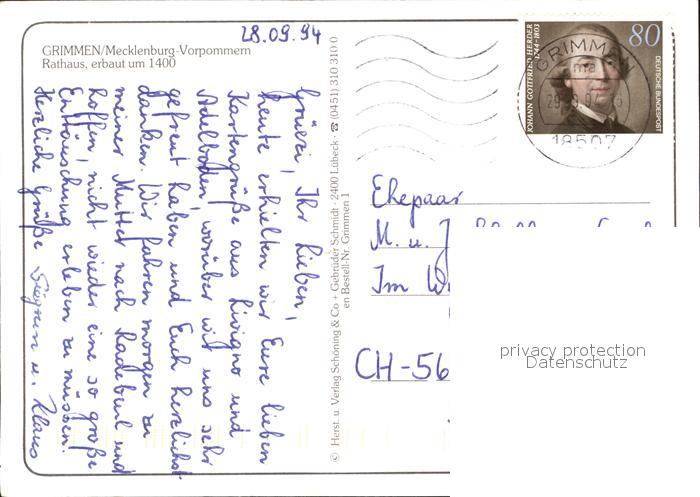 28.09.94
GRIMMEN/Mecklenburg-Vorpommern
Rathaus, erbaut um 1400
Grüezi, Ihr Lieben,
heute erhielten wir Eure lieben
Kartengrüße aus Livigno und
Adelboden, worüber wir uns sehr
gefreut haben und Euch herzlichst
danken. Wir fahren morgen zu
meiner Mutter nach Radebeul und
hoffen, nicht wieder eine so große
Enttäuschung erleben zu müssen.
Herzliche Grüße Sigrun u. Klaus
© Herst. u. Verlag Schöning & Co + Gebrüder Schmidt · 2400 Lübeck · ☎ (0451) 310 310 0
en Bestell-Nr. Grimmen 1
JOHANN GOTTFRIED HERDER
1744-1803
80
DEUTSCHE BUNDESPOST
GRIMMEN
18507
Ehepaar
M. u. J
Im W
CH-56
privacy protection
Datenschutz